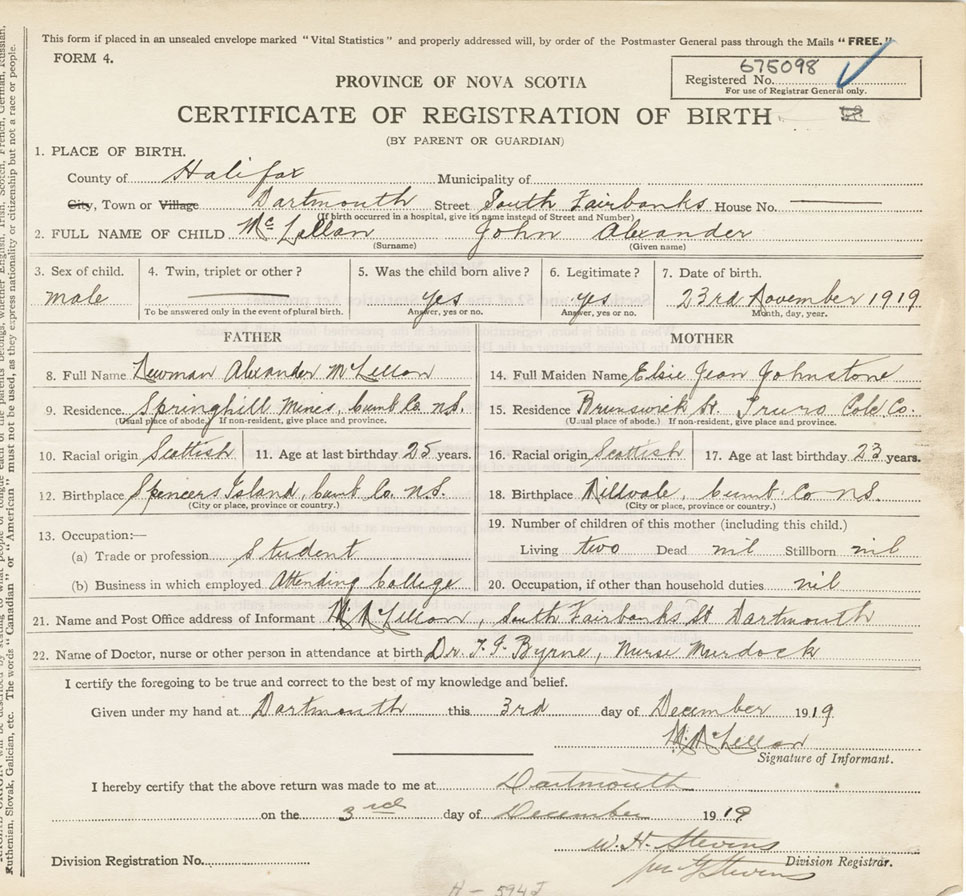 This form if placed in an unsealed envelope marked "Vital Statistics" and properly addressed will, by order of the Postmaster General pass through the Mails "FREE."
FORM 4.
675098
Registered No.
For use of Registrar General only.
PROVINCE OF NOVA SCOTIA
CERTIFICATE OF REGISTRATION OF BIRTH
(BY PARENT OR GUARDIAN)
1. PLACE OF BIRTH.
County of Halifax Municipality of
City, Town or Village Dartmouth Street South Fairbanks House No.
(If birth occurred in a hospital, give its name instead of Street and Number)
2. FULL NAME OF CHILD McLellan John Alexander
(Surname) (Given name)
3. Sex of child. 4. Twin, triplet or other? 5. Was the child born alive? 6. Legitimate? 7. Date of birth.
male Yes yes 23rd November 1919
To be answered only in the event of plural birth. Answer, yes or no. Answer, yes or no. Month, day, year.
FATHER MOTHER
8. Full Name Newman Alexander McLellan 14. Full Maiden Name Elsie Jean Johnstone
9. Residence. Springhill Mines, Cumb Co. N.S. 15. Residence Brunswick St. Truro Col. Co.
(Usual place of abode.) If non-resident, give place and province. (Usual place of abode.) If non-resident, give place and province.
10. Racial origin Scottish 11. Age at last birthday 25 years. 16. Racial origin Scottish 17. Age at last birthday 23 years.
12. Birthplace Spencers Island, Cumb Co. N.S. 18. Birthplace Millvale, Cumb. Co N.S.
(City or place, province or country.) (City or place, province or country.)
13. Occupation:— 19. Number of children of this mother (including this child.)
(a) Trade or profession Student Living two Dead nil Stillborn nil
(b) Business in which employed Attending College 20. Occupation, if other than household duties nil
21. Name and Post Office address of Informant McLellan, South Fairbanks St Dartmouth
22. Name of Doctor, nurse or other person in attendance at birth Dr. Byrne, Nurse Murdock
I certify the foregoing to be true and correct to the best of my knowledge and belief.
Given under my hand at Dartmouth this 3rd day of December 1919
McLellan
Signature of Informant.
I hereby certify that the above return was made to me at Dartmouth
on the 3rd day of December 1919
W. H. Stevens
Division Registration No. Division Registrar.
Stevens